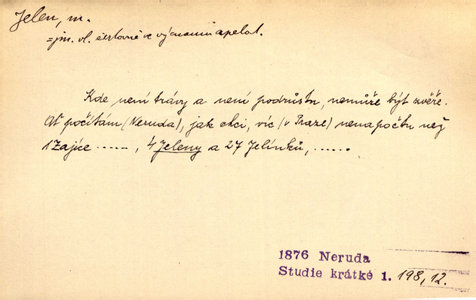 Jelen, m.
= jm. vl. žertovně ve významu apelat.
Kde není trávy a není podrůstu, nemůže být zvěře.
Ať počítám (Neruda), jak chci, víc (v Praze) nenapočtu než
1 Zajíce ......, 4 Jeleny a 27 Jelínků, ......
1876 Neruda
Studie krátké 1. 198,12.